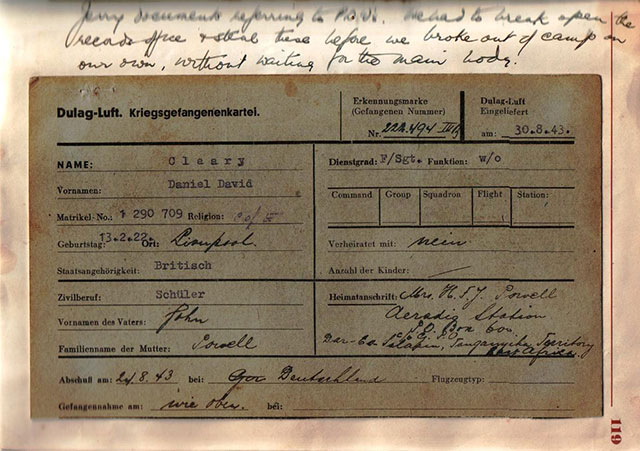 Jerry documents referring to P.O.W. We had to break open the
records office & steal these before we broke out of camp on
our own, without waiting for the main body.
Dulag-Luft. Kriegsgefangenenkartei.
Erkennungsmarke
(Gefangenen Nummer)
Nr. 222.494 IVB
Dulag-Luft
Eingeliefert
am: 30.8.43.
NAME: Cleary
Vornamen: Daniel David
Matrikel-No.: 1 290 709 Religion: C of E
Geburtstag: 13.2.22. Ort: Liverpool.
Staatsangehörigkeit: Britisch
Dienstgrad: F/Sgt. Funktion: w/o
Command Group Squadron Flight Station:
Verheiratet mit: nein
Anzahl der Kinder: —
Zivilberuf: Schüler
Vornamen des Vaters: John
Familienname der Mutter: Powell
Heimatanschrift: Mrs. H.T.J. Powell
Aeradio Station
P.O. Box 600.
Dar-Es Salaam, Tanganyika Territory
East Africa.
Abschuß am: 24.8.43 bei: Deutschland Flugzeugtyp:
Gefangennahme am: wie oben. bei:
119